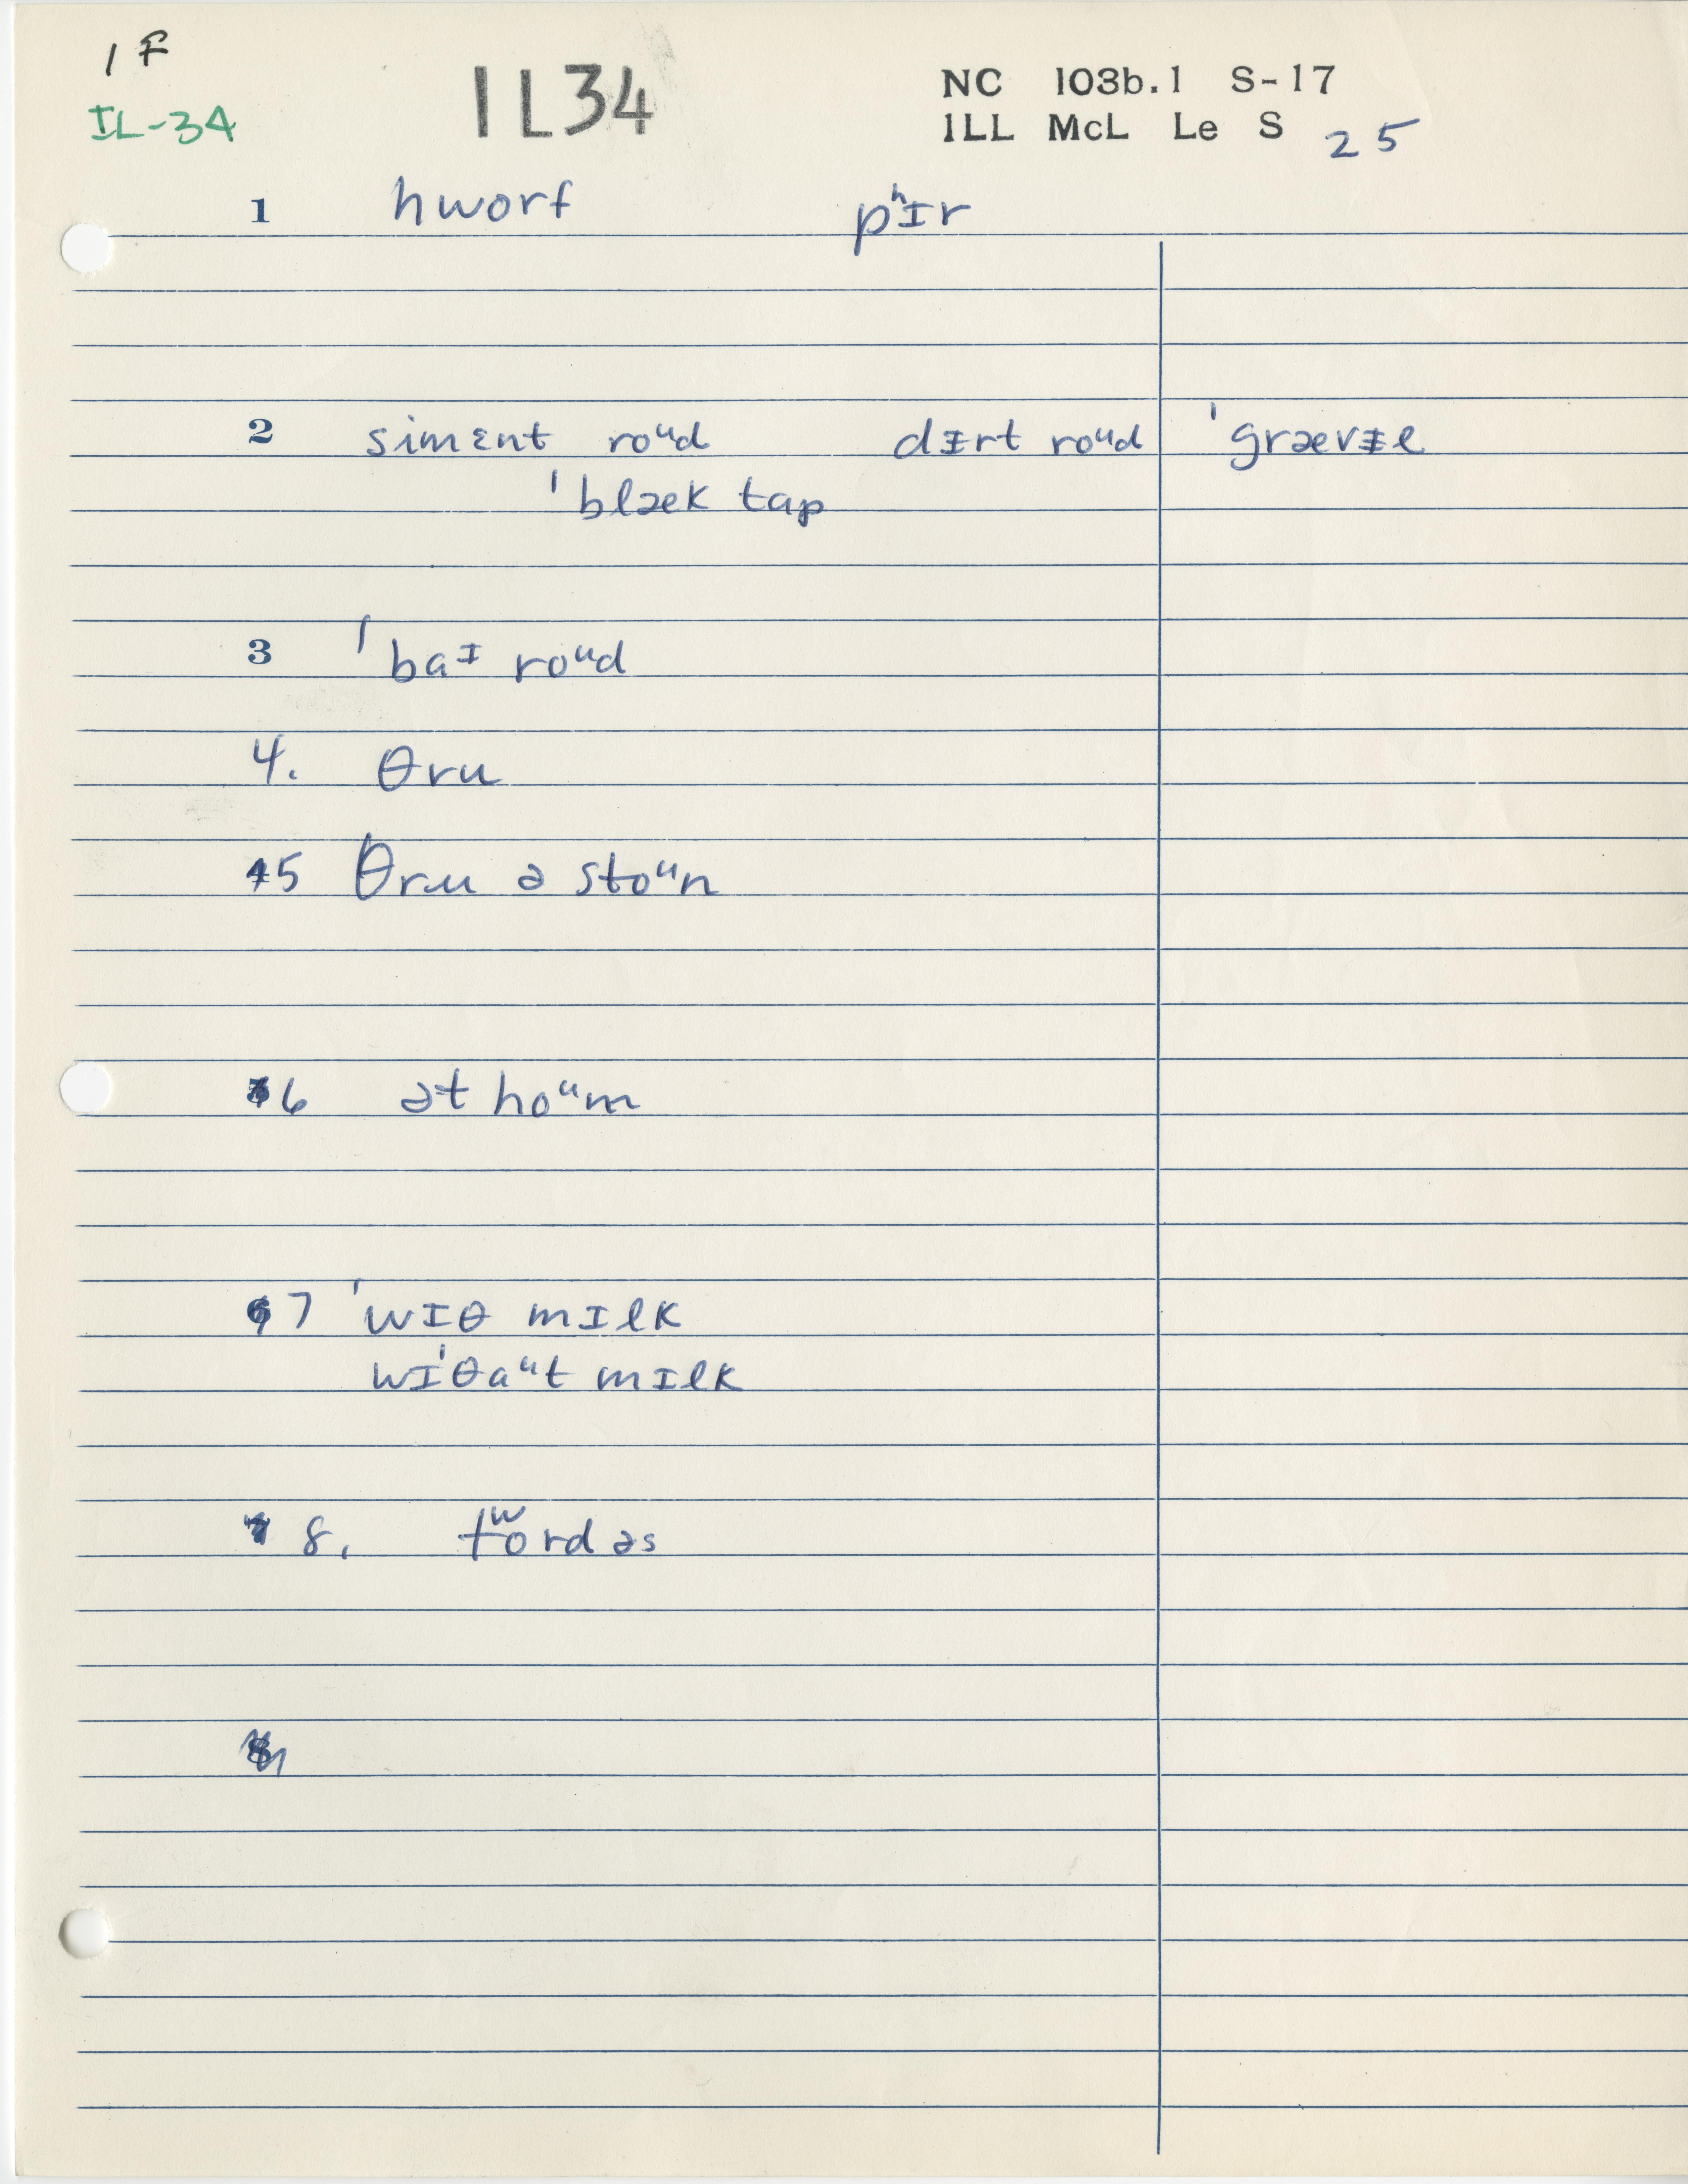 1 F
IL-34
IL34
NC 103b.1 S-17
ILL McL Le S 25
1 hworf pʰɪr
2 simɛnt roᵘd dɪrt roᵘd ˈgrævɪl
ˈblæk tap
3 ˈbaɪ roᵘd
4. θru
5 θru ə stoᵘn
6 ət hoᵘm
7 ˈwɪθ mɪlk
wɪˈθaᵘt mɪlk
8. tʷordəs